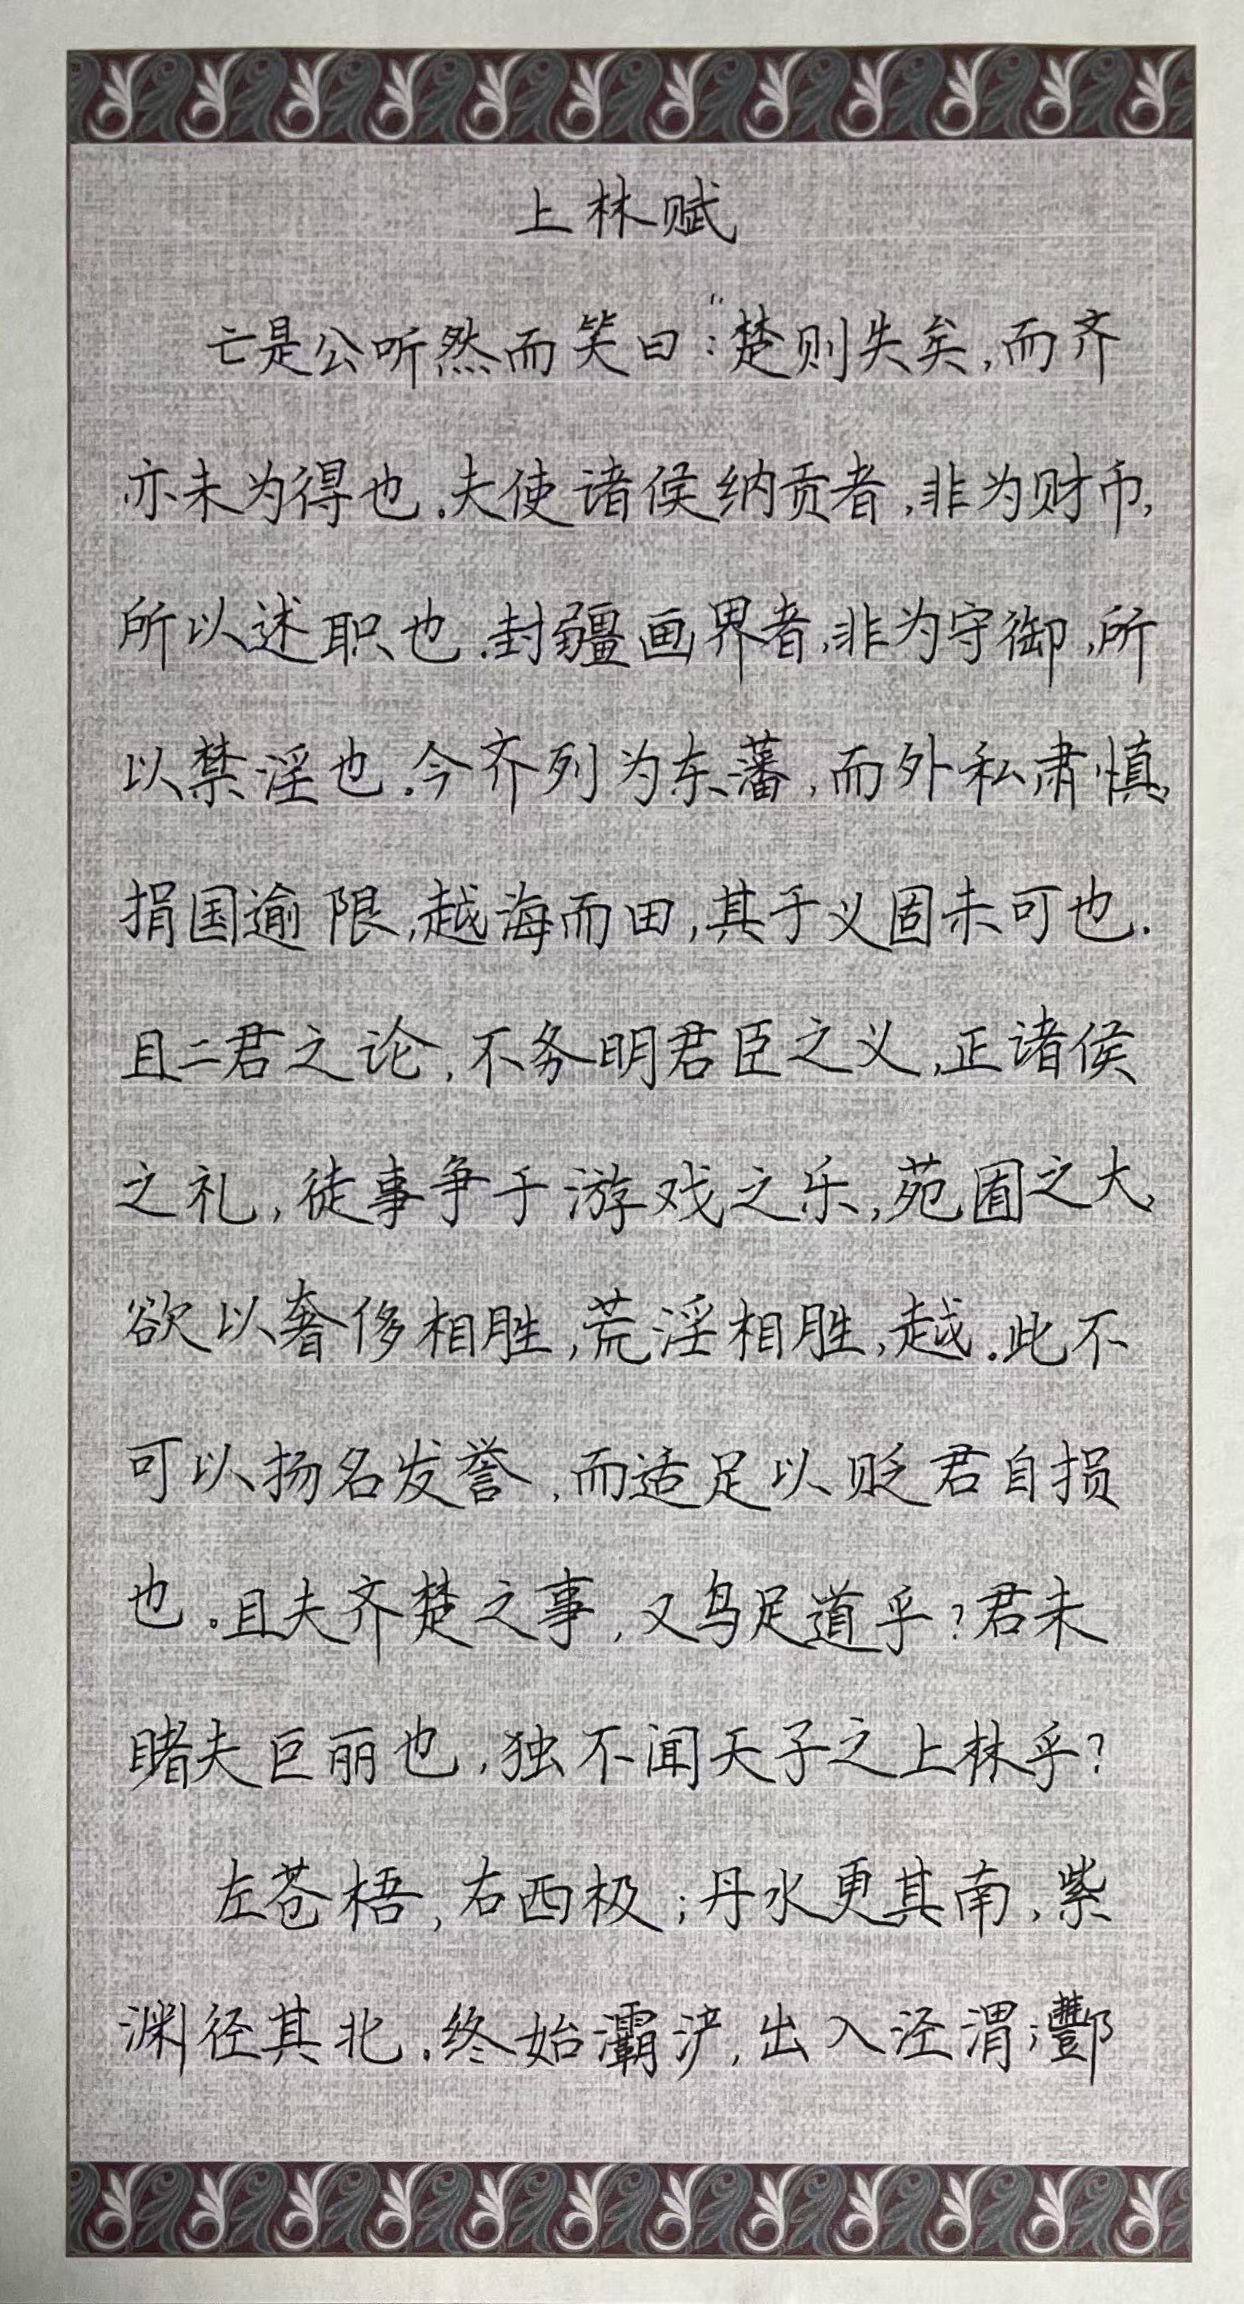 上林赋
亡是公听然而笑曰：“楚则失矣，而齐
亦未为得也．夫使诸侯纳贡者，非为财币，
所以述职也．封疆画界者，非为守御，所
以禁淫也．今齐列为东藩，而外私肃慎，
捐国逾限，越海而田，其于义固未可也．
且二君之论，不务明君臣之义，正诸侯
之礼，徒事争于游戏之乐，苑囿之大，
欲以奢侈相胜，荒淫相胜，越．此不
可以扬名发誉，而适足以贬君自损
也．且夫齐楚之事，又乌足道乎？君未
睹夫巨丽也，独不闻天子之上林乎？
左苍梧，右西极；丹水更其南，紫
渊径其北．终始灞浐，出入泾渭；酆